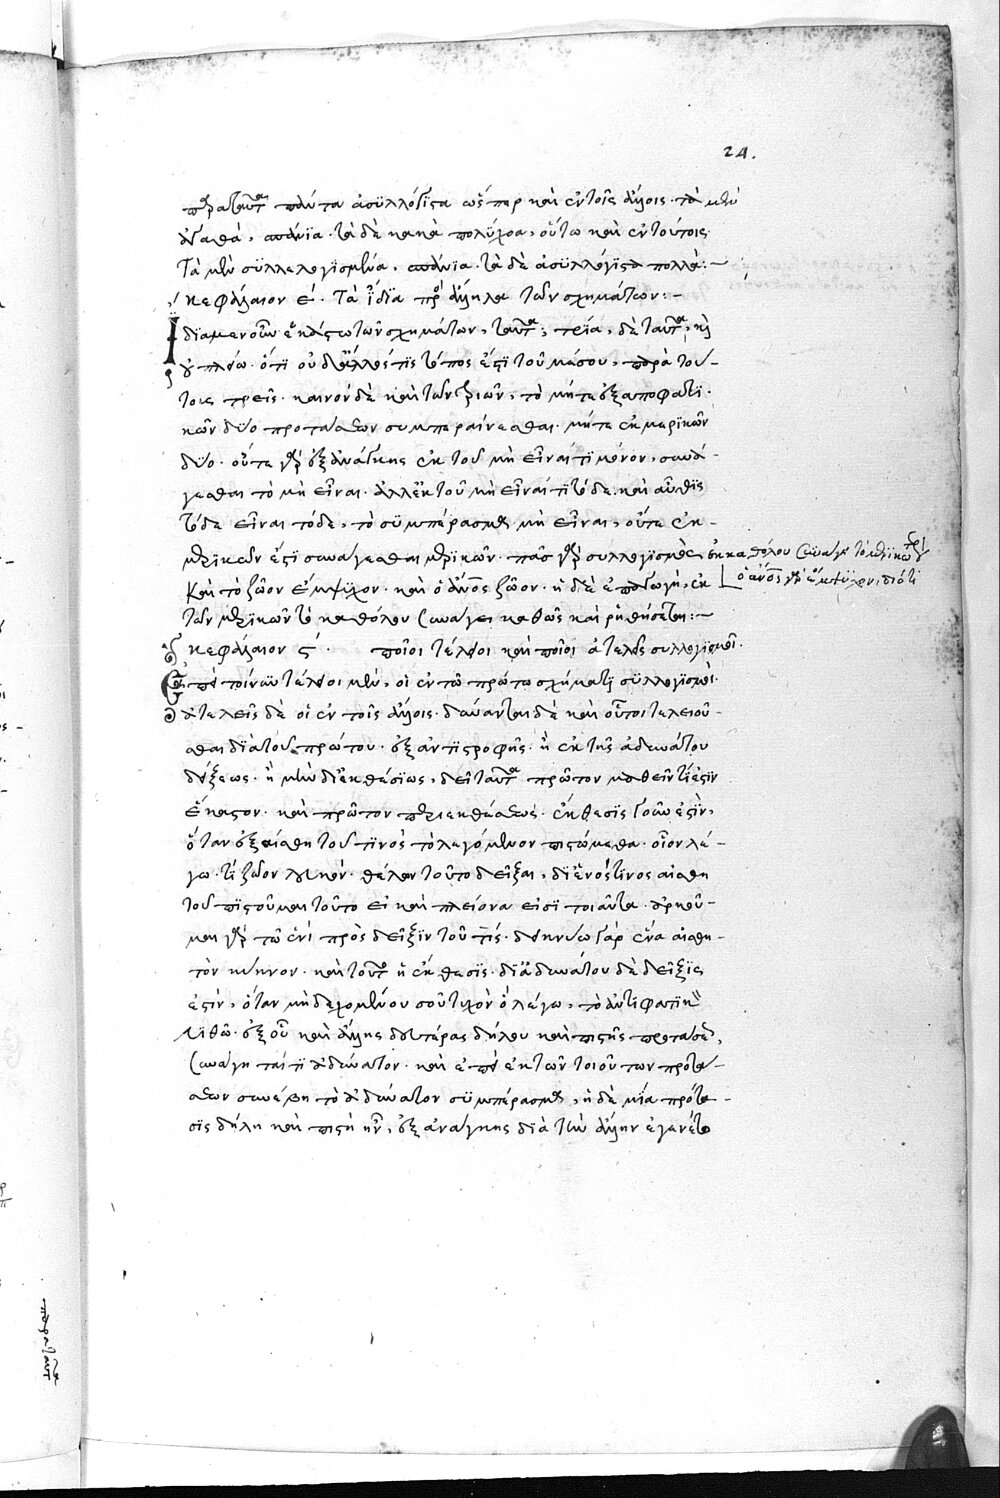 24.
παρα ταῦτα πάντα ἀσυλλόγιστα ὥσπερ καὶ ἐν τοῖς ἄλλοις· τὰ μὲν
ἀγαθὰ, σπάνια· τὰ δὲ κακὰ πολύχοα, οὕτω καὶ ἐν τούτοις
Τὰ μὲν συλλελογισμένα, σπάνια· τὰ δὲ ἀσυλλόγιστα πολλά:—
κεφάλαιον έ. Τὰ ἴδια πρὸς ἄλληλα τῶν σχημάτων:—
Ἴδια μὲν οὖν ἑκάστω τῶν σχημάτων, ταῦτα, τρία, δὲ ταῦτα, καὶ
οὐ πλέω· ὅτι οὐδ' ἄλλός τις τόπος ἐστὶ τοῦ μέσου, παρὰ τού-
τοις τρεῖς· κοινὸν δὲ καὶ τῶν τριῶν, τὸ μήτε ἐξ ἀποφατι-
κῶν δύο προτάσεων συμπεραίνεσθαι· μήτε ἐκ μερικῶν
δύο· οὔτε γὰρ ἐξ ἀνάγκης ἐκ τοῦ μὴ εἶναί τι μόνον, συνά-
γεσθαι τὸ μὴ εἶναι· ἀλλ' ἐκ τοῦ μὴ εἶναί τι τόδε καὶ αὖθις
τόδε εἶναι τόδε, τὸ συμπέρασμα μὴ εἶναι, οὔτε ἐκ
μερικῶν ἐστὶ συνάγεσθαι μερικῶν· πᾶς γὰρ συλλογισμὸς, ἐκ καθόλου συνάγει τὸ μερικώτερον
Καὶ τὸ ζῶον ἔμψυχον· καὶ ὁ ἄνος ζῶον· ἡ δὲ ἐπαγωγὴ, ἐκ
ὁ ἄνος γὰρ ἔμψυχον, διότι
τῶν μερικῶν τὸ καθόλου συνάγει καθὼς καὶ ῥηθήσεται:—
κεφάλαιον ς΄. ποῖοι τέλειοι καὶ ποῖοι ἀτελεῖς συλλογισμοί.
Ἐπὶ τοίνυν τέλειοι μὲν, οἱ ἐν τῶ πρώτω σχήματι συλλογισμοί·
ἀτελεῖς δὲ οἱ ἐν τοῖς ἄλλοις· δύνανται δὲ καὶ οὗτοι τελειοῦ-
σθαι διὰ τοῦ πρώτου· ἐξ ἀντιστροφῆς· ἢ ἐκ τῆς ἀδυνάτου
δείξεως· ἢ μὲν δι' ἐκθέσεως, δεῖ ταῦτα πρῶτον μαθεῖν τί ἐστιν
ἕκαστον· καὶ πρῶτον περὶ ἐκθέσεως· ἔκθεσις γοῦν ἐστὶν,
ὅταν ἐξ αἰσθητοῦ τινὸς τὸ λεγόμενον πιστώμεθα· οἷον λέ-
γω· τὶ ζῶον λευκόν· θέλων τοῦτο δεῖξαι, δι' ἑνός τινος αἰσθη
τοῦ πιστοῦμαι τοῦτο εἰ καὶ πλείονα εἰσὶ τοιαῦτα· ἀρκοῦ-
μαι γὰρ τῶ ἑνὶ πρὸς δεῖξιν τοῦ τίς· δεικνύω γὰρ ἕνα αἰσθη-
τὸν κύκνον· καὶ τοῦτο ἡ ἔκθεσις· δι' ἀδυνάτου δὲ δεῖξις
ἐστὶν, ὅταν μὴ δεχομένου σοῦ τυχὸν ὃ λέγω, τὸ ἀντιφατικὸν
λιθῶ· ἐξ οὗ καὶ ἄλλης δευτέρας δήλου καὶ πιστῆς προτάσεως,
συνάγηταί τι ἀδύνατον· καὶ ἐπεὶ ἐκ τῶν τοιούτων προτά-
σεων συνέβη τὸ ἀδύνατον συμπέρασμα, ἡ δὲ μία πρότα-
σις δήλη καὶ πιστὴ ἦν, ἐξ ἀνάγκης διὰ τὴν ἄλλην ἐγένετο